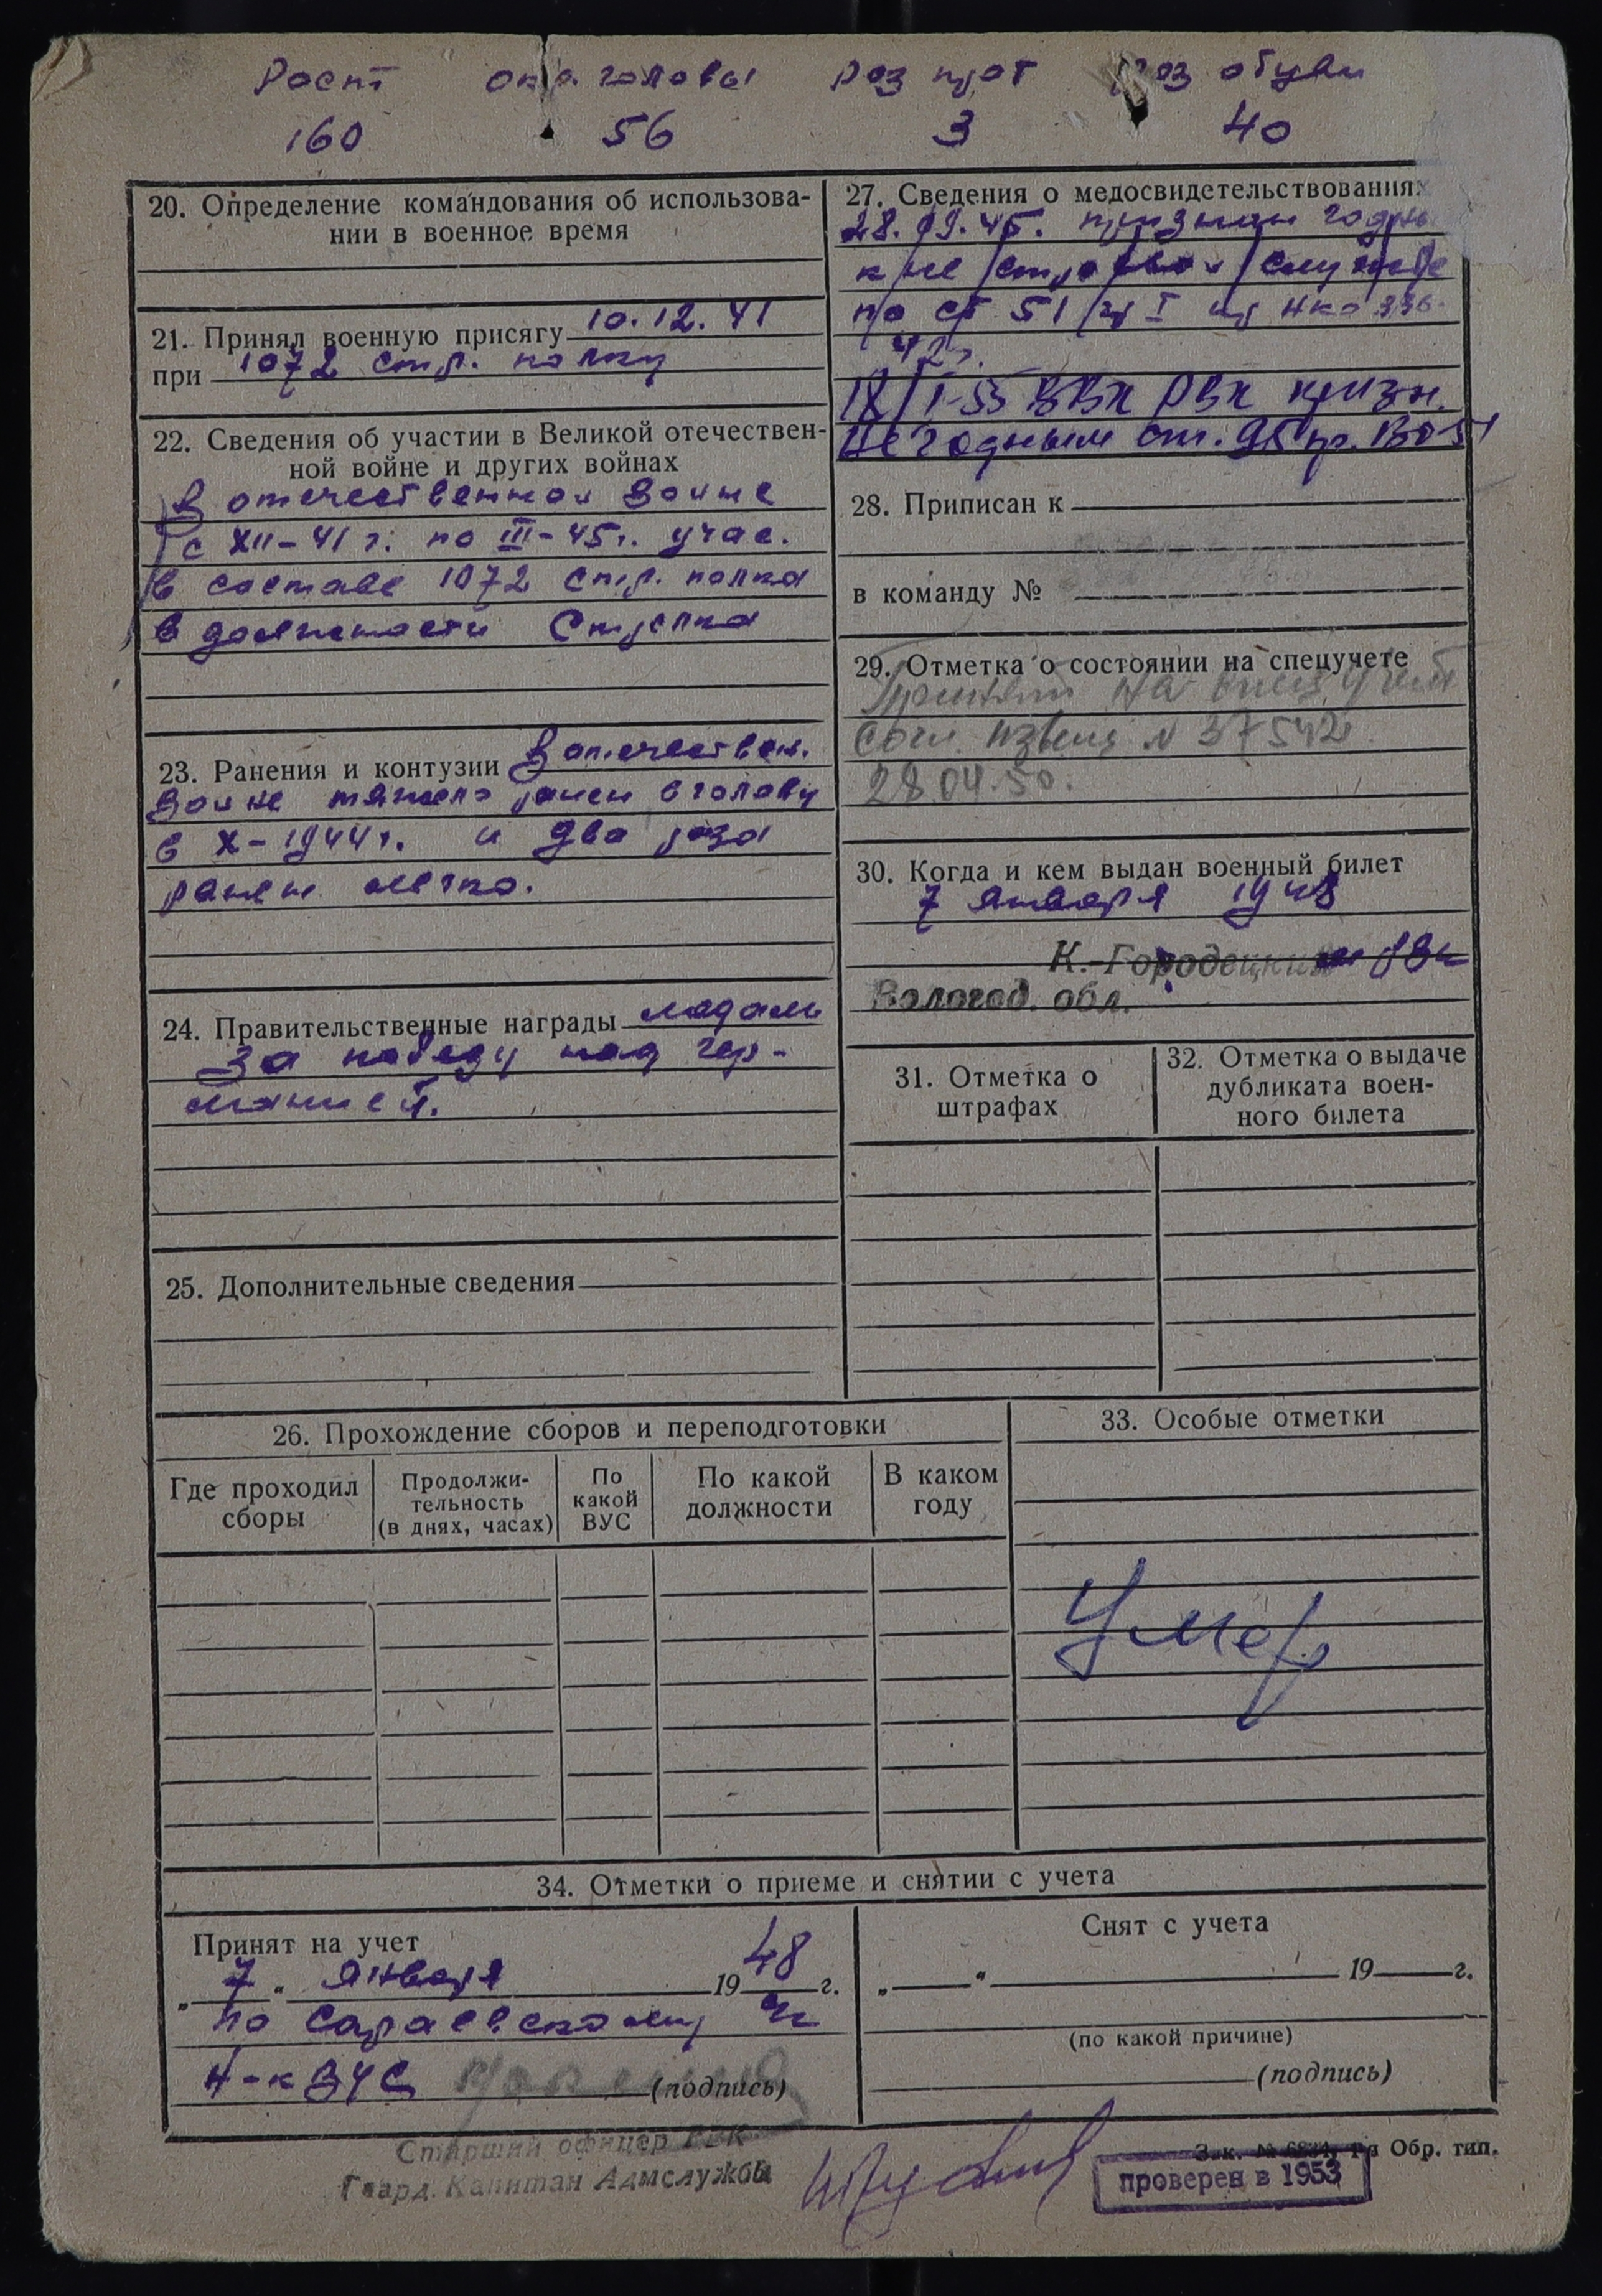 Рост окр. головы раз прот раз обуви
160 56 3 40
20. Определение командования об использова-
нии в военное время
21. Принял военную присягу 10.12.41
при 1072 стр. полку
22. Сведения об участии в Великой отечествен-
ной войне и других войнах
В отечественной войне
с XII-41 г. по III-45г. учас.
в составе 1072 стр. полка
в должности Стрелка
23. Ранения и контузии В отечествен.
войне тяжело ранен в голову
в X-1944г. и два раза
ранен легко.
24. Правительственные награды медаль
за победу над гер-
манией.
25. Дополнительные сведения
27. Сведения о медосвидетельствованиях
28.09.45. признан годным
к не строевой службе
по ст 51 гр I пр НКО 336-
42г.
18/I-53 ВВК РВК призн.
Не годным ст. 95 пр. ВО-51
28. Приписан к
в команду №
29. Отметка о состоянии на спецучете
Принят на спец учет
согл. извещ N 37542
28.04.50.
30. Когда и кем выдан военный билет
7 января 1948
К.-Городецким РВК
Вологод. обл.
31. Отметка о
штрафах
32. Отметка о выдаче
дубликата воен-
ного билета
26. Прохождение сборов и переподготовки
Где проходил
сборы
Продолжи-
тельность
(в днях, часах)
По
какой
ВУС
По какой
должности
В каком
году
33. Особые отметки
Умер
34. Отметки о приеме и снятии с учета
Принят на учет
„7“ января 1948 г.
по Сараевскому
Н-к ВУС (подпись)
Старший офицер РВК
Гвард. Капитан Адмслужбы
Снят с учета
„ “ 19 г.
(по какой причине)
(подпись)
Зак. № Обр. тип.
проверен в 1953